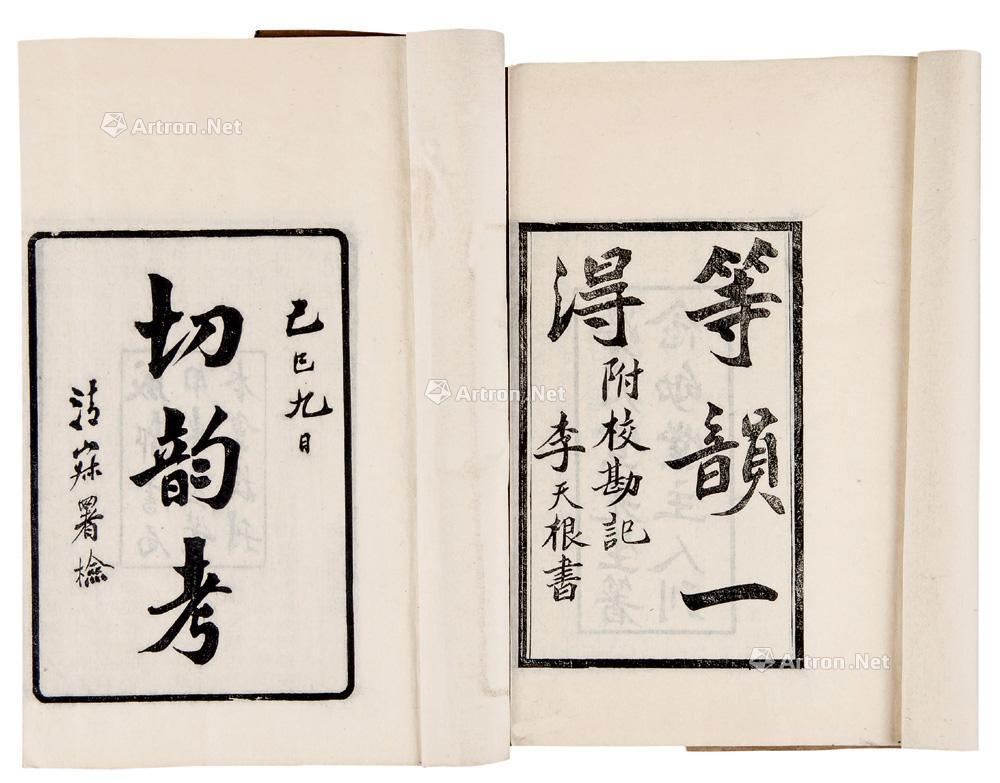 己巳九日
切韵考
清寐署檢
等韻一
淂
附校勘記
李天根書
Artron.Net
Artron.Net
Artron.Net